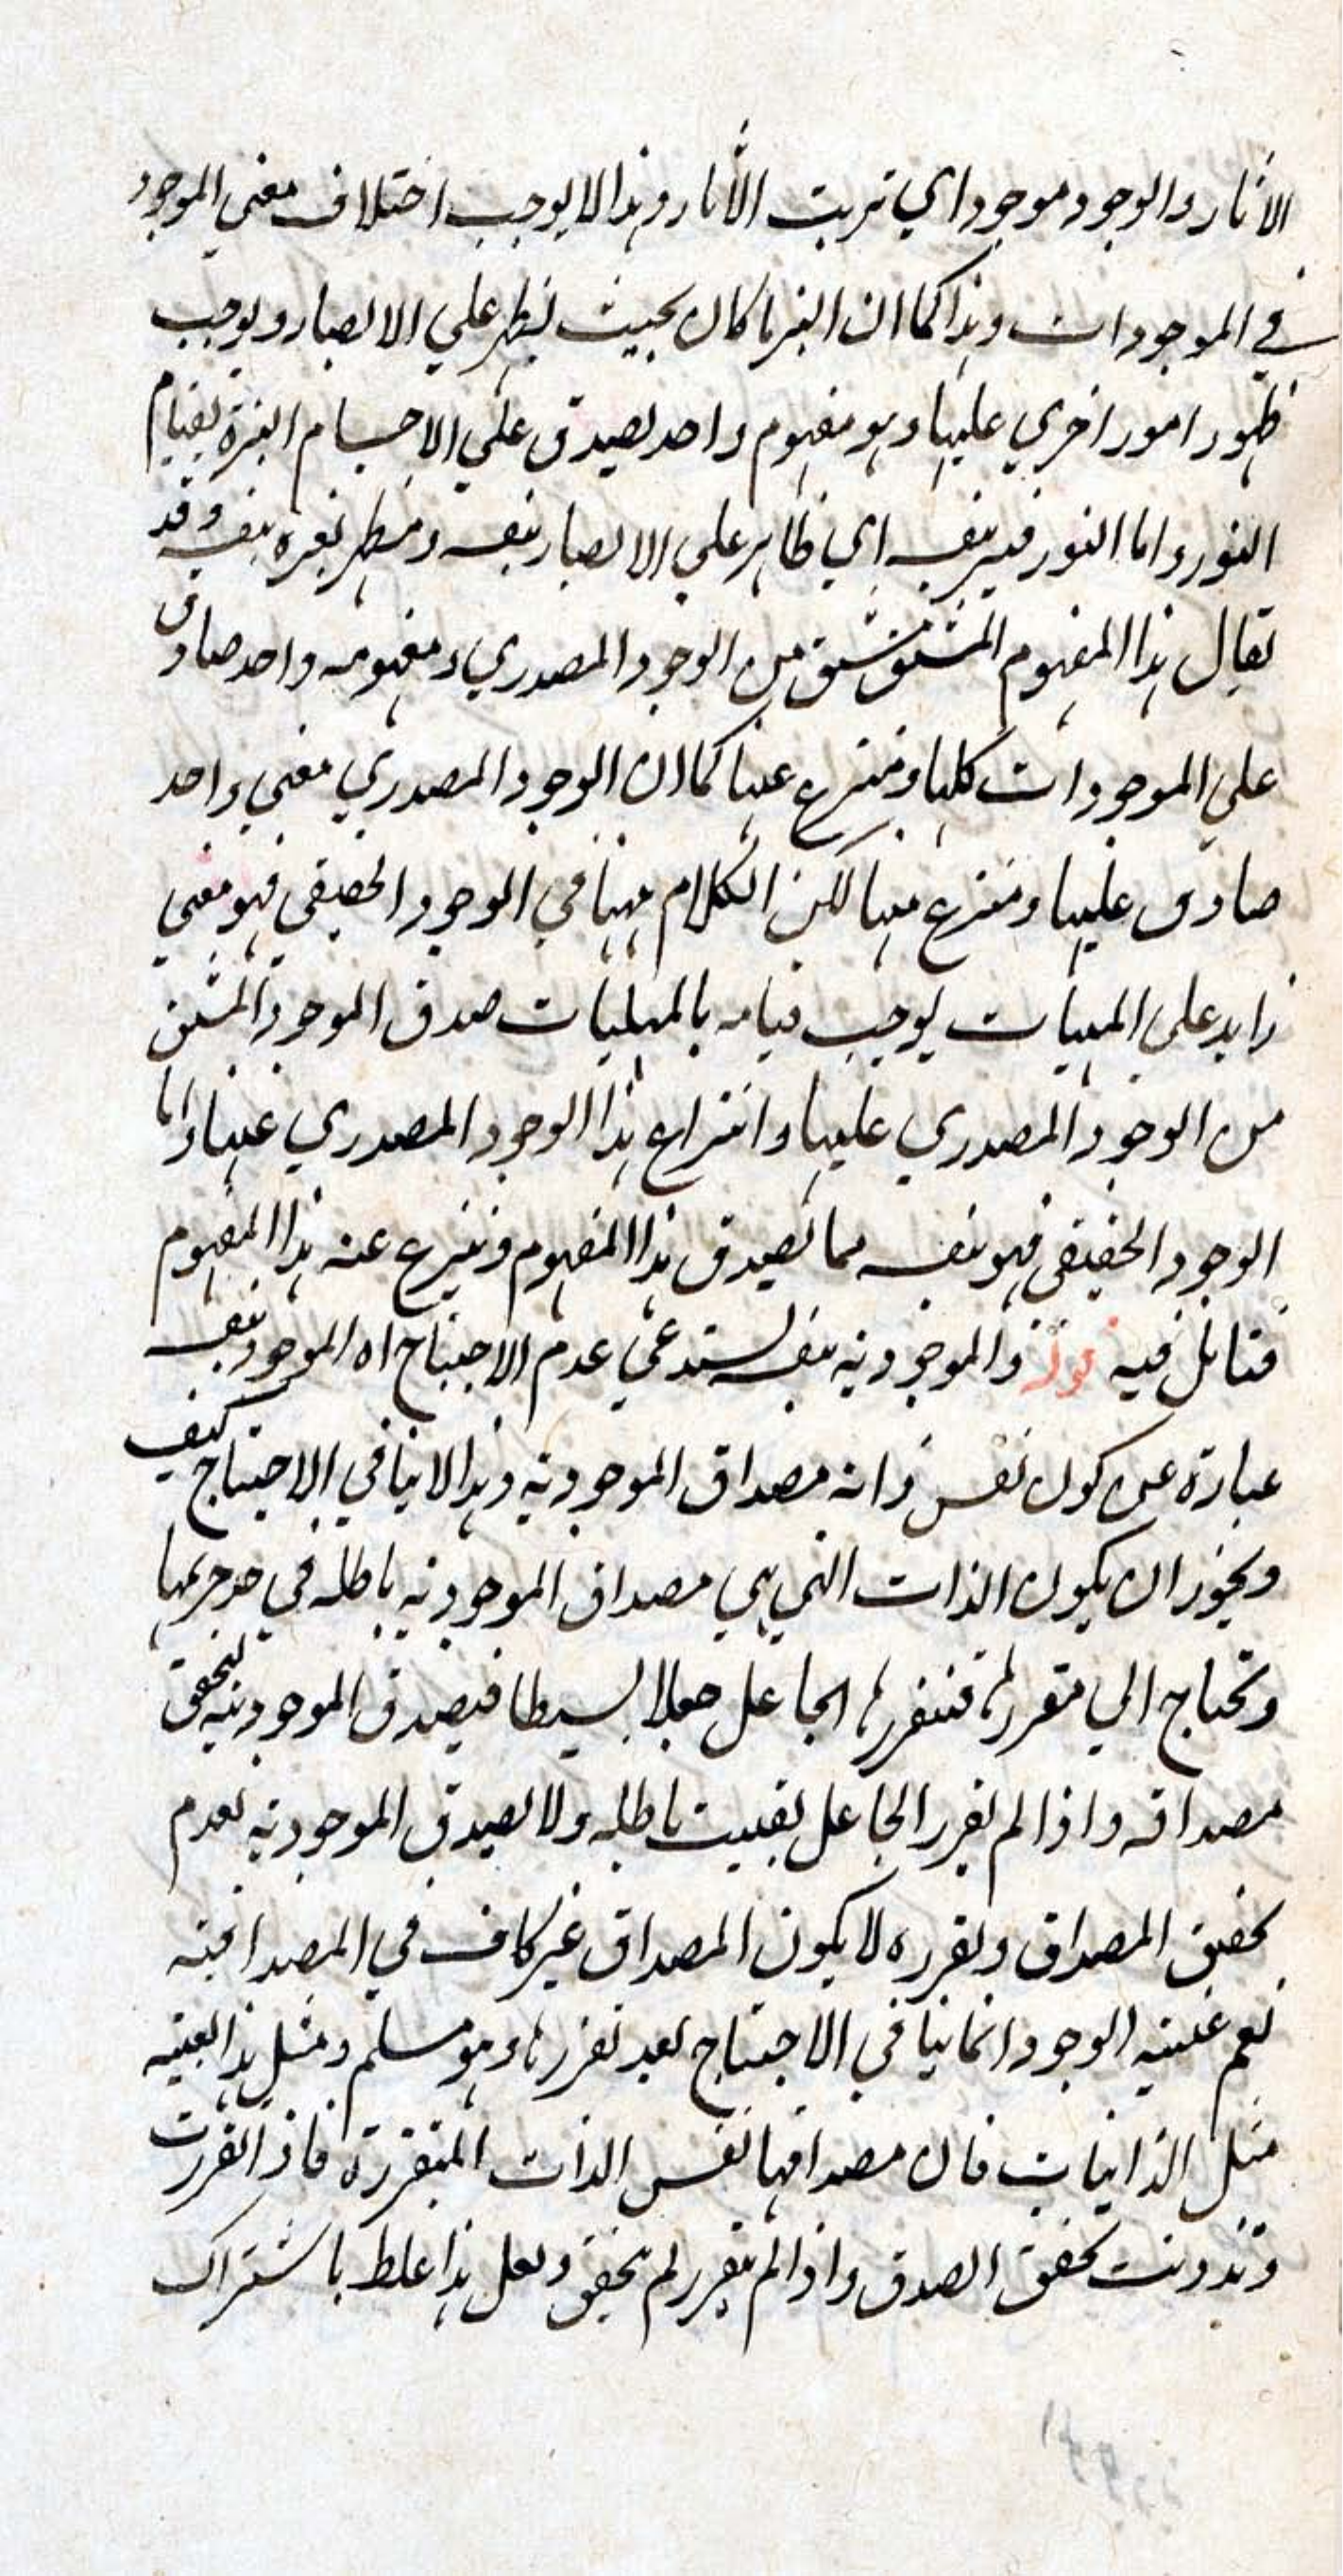 الآثار والوجود موجود اي ترتب الآثار وهذا لا يوجب اختلاف معني الموجود
في الموجودات وهذا كما ان النير ما كان بحيث يظهر علي الابصار ويوجب
ظهور امور اخري عليها وهو مفهوم واحد يصدق علي الاجسام النيرة بقيام
النور واما النور فنير بنفسه اي ظاهر علي الابصار بنفسه ومظهر لغيره بنفسه وقد
يقال هذا المفهوم المشتق مشتق من الوجود المصدري ومفهومه واحد صادق
علي الموجودات كلها ومنتزع عنها كما ان الوجود المصدري معني واحد
صادق عليها ومنتزع منها لكن الكلام ههنا في الوجود الحقيقي فهو معني
زايد علي المهيات يوجب قيامه بالمهيات صدق الموجود المشتق
من الوجود المصدري عليها وانتزاع هذا الوجود المصدري عنها واما
الوجود الحقيقي فهو بنفسه مما يصدق هذا المفهوم وينتزع عنه هذا المفهوم
فتامل فيه قوله والموجودية بنفسه يستدعي عدم الاحتياج اه الموجود بنفسه
عبارة عن كون نفس ذاته مصداق الموجودية وهذا لا ينافي الاحتياج كيف
ويجوز ان يكون الذات التي هي مصداق الموجودية باطلة في حد جوهرها
وتحتاج الي مقرر لها فتقررها الجاعل جعلا بسيطا فيصدق الموجودية لتحقق
مصداقه واذا لم يقرر الجاعل بقيت باطلة ولا يصدق الموجودية لعدم
تحقق المصداق وتقرره لا يكون المصداق غير كاف في المصداقية
نعم عينية الوجود انما ينافي الاحتياج بعد تقررها وهو مسلم ومثل هذا العينية
مثل الذاتيات فان مصداقها نفس الذات المتقررة فاذا تقررت
وتذوتت تحقق الصدق واذا لم يتقرر لم يتحقق ولعل هذا غلط باشتراك